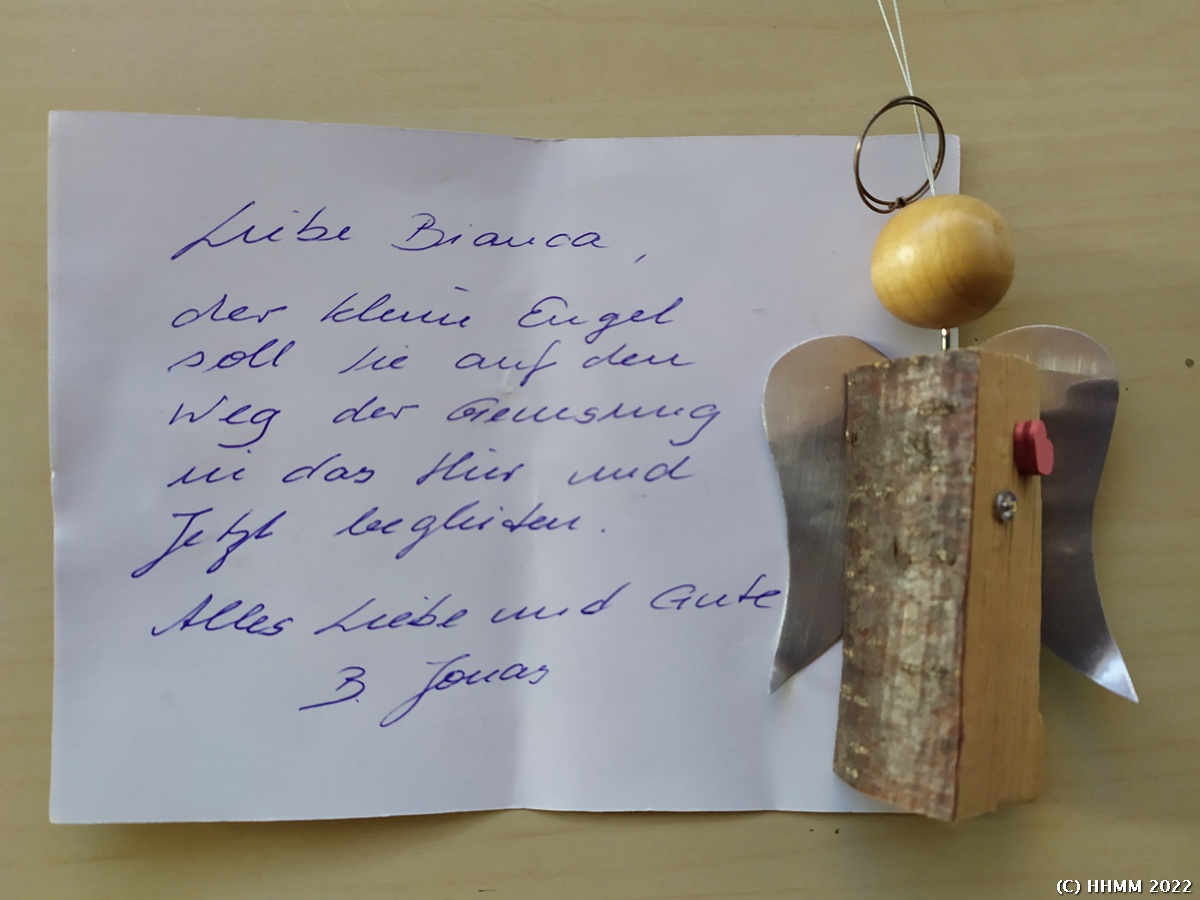 Liebe Bianca,
der kleine Engel
soll sie auf den
Weg der Genesung
in das Hier und
Jetzt begleiten.
Alles Liebe und Gute
B. Jonas
(C) HHMM 2022